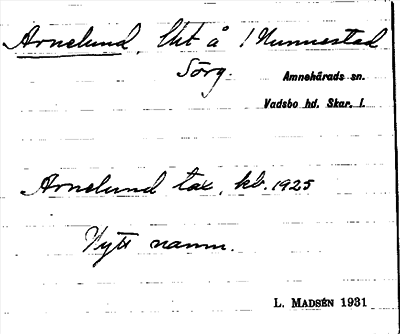 Arnelund, Utt å 1 Nunnestad
Sörg.
Amnehärads sn.
Vadsbo hd. Skar. l.
Arnelund tax, kb. 1925
Nytt namn.
L. MADSÉN 1931